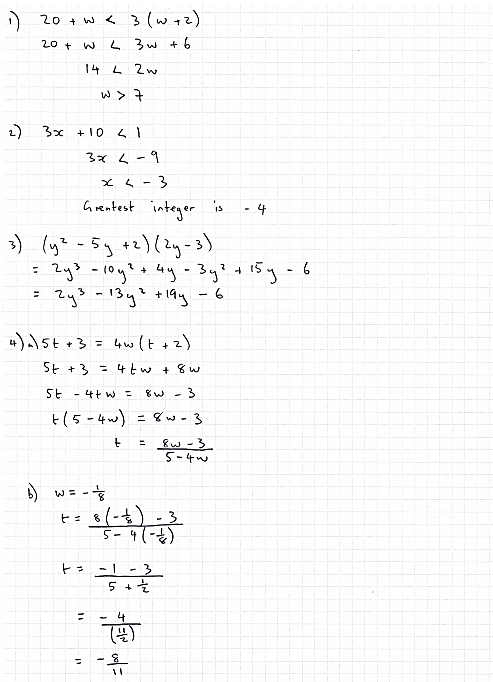 1) 20 + w < 3 (w + 2)
20 + w < 3w + 6
14 < 2w
w > 7
2) 3x + 10 < 1
3x < - 9
x < - 3
Greatest integer is - 4
3) (y² - 5y + 2)(2y - 3)
= 2y³ - 10y² + 4y - 3y² + 15y - 6
= 2y³ - 13y² + 19y - 6
4) a) 5t + 3 = 4w (t + 2)
5t + 3 = 4tw + 8w
5t - 4tw = 8w - 3
t (5 - 4w) = 8w - 3
t = (8w - 3)/(5 - 4w)
b) w = - 1/8
t = (8(-1/8) - 3)/(5 - 4(-1/8))
t = (-1 - 3)/(5 + 1/2)
= -4/(11/2)
= - 8/11